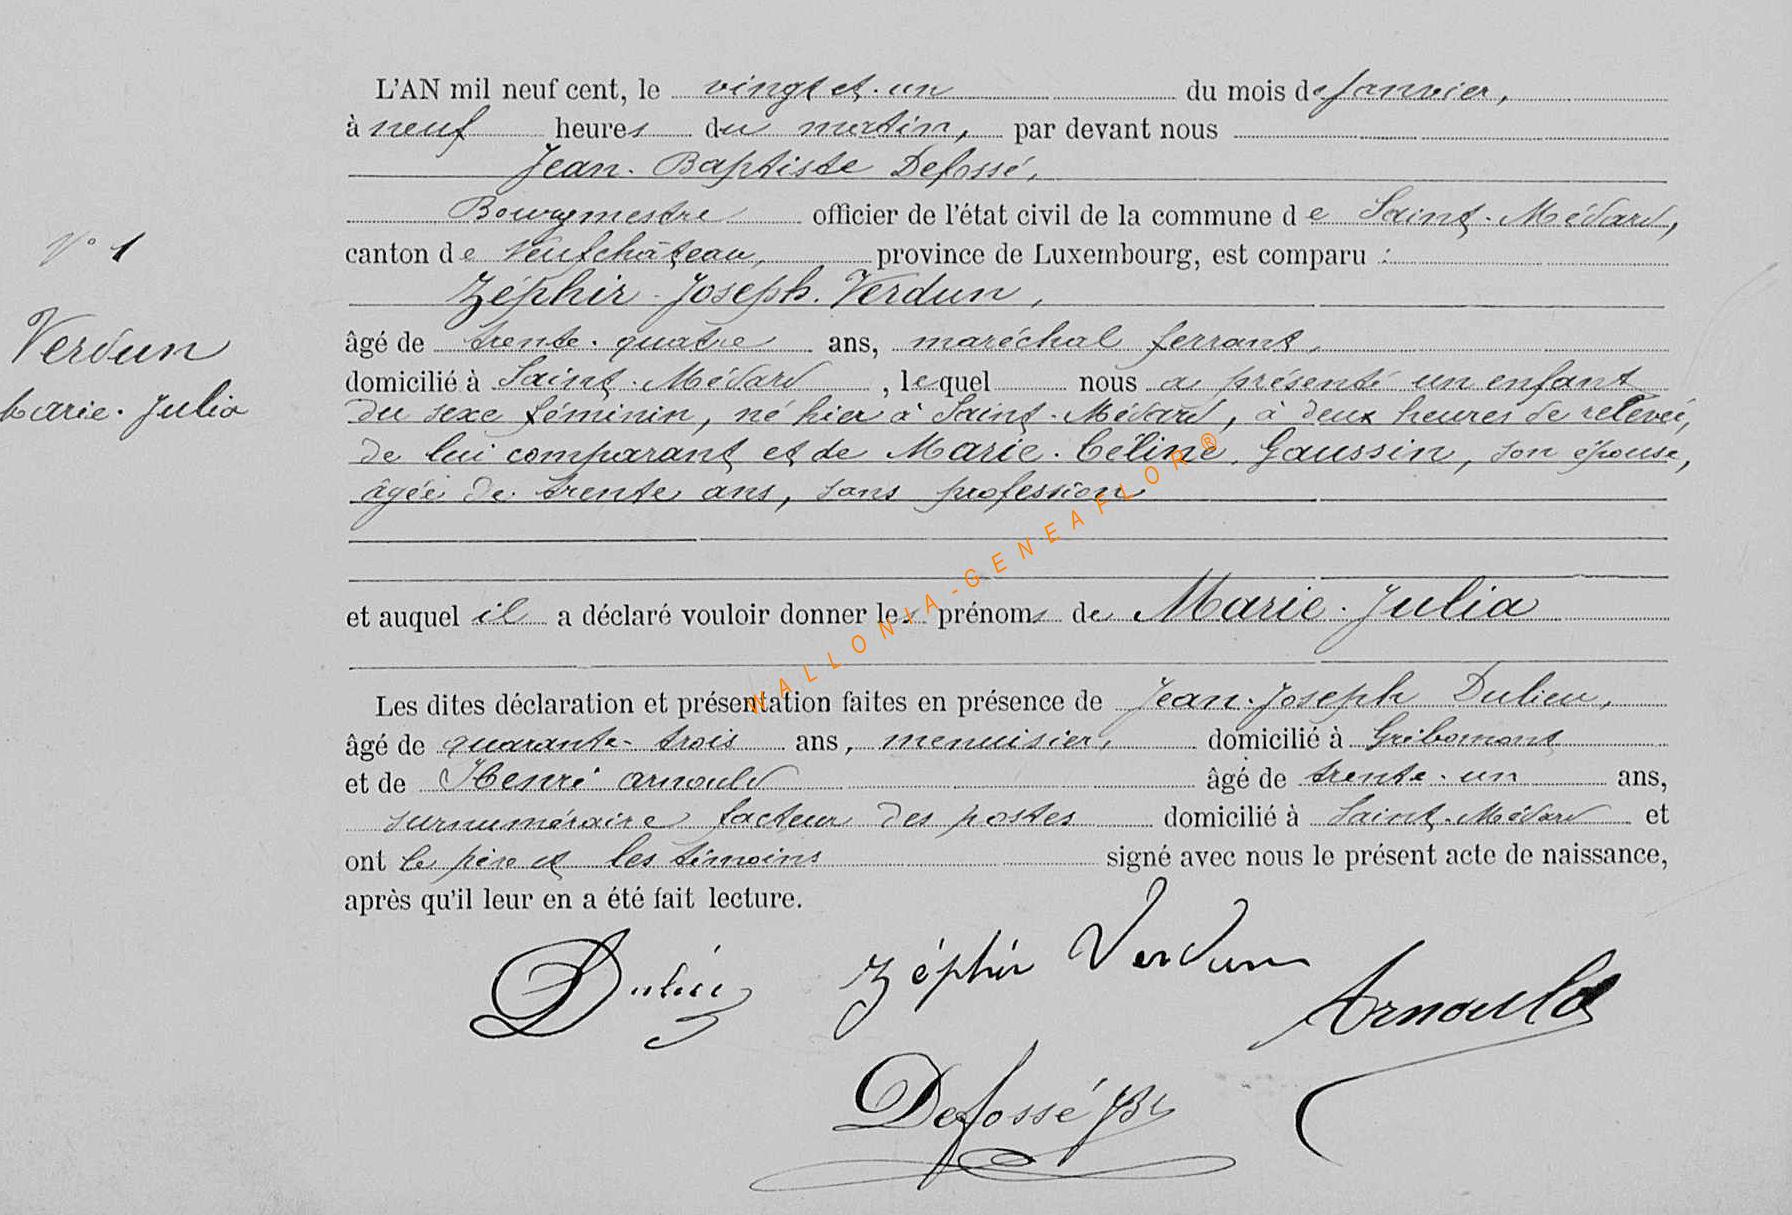 L'AN mil neuf cent, le vingt et un du mois de Janvier,
à neuf heures du matin, par devant nous
Jean-Baptiste Defossé,
Bourgmestre officier de l'état civil de la commune de Saint-Médard,
canton de Neufchâteau, province de Luxembourg, est comparu :
Zéphir-Joseph Verdun,
âgé de trente-quatre ans, maréchal ferrant,
domicilié à Saint-Médard, lequel nous a présenté un enfant
du sexe féminin, né hier à Saint-Médard, à deux heures de relevée,
de lui comparant et de Marie-Céline Gaussin, son épouse,
âgée de trente ans, sans profession
et auquel il a déclaré vouloir donner les prénoms de Marie-Julia
Les dites déclaration et présentation faites en présence de Jean-Joseph Dulieu,
âgé de quarante-trois ans, menuisier, domicilié à Gribomont
et de Henri Arnould âgé de trente-un ans,
surnuméraire facteur des postes domicilié à Saint-Médard et
ont le père et les témoins signé avec nous le présent acte de naissance,
après qu'il leur en a été fait lecture.
N° 1
Verdun
Marie-Julia
Dulieu Zéphir Verdun Arnould
Defossé JB
WALLONIA-GENEAFLOR ®